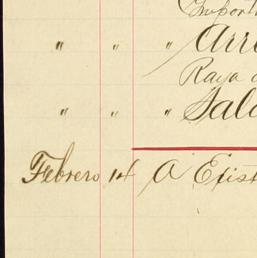 Import
" " " Arr
Raya
" " " Sal
Febrero 14 A Exist